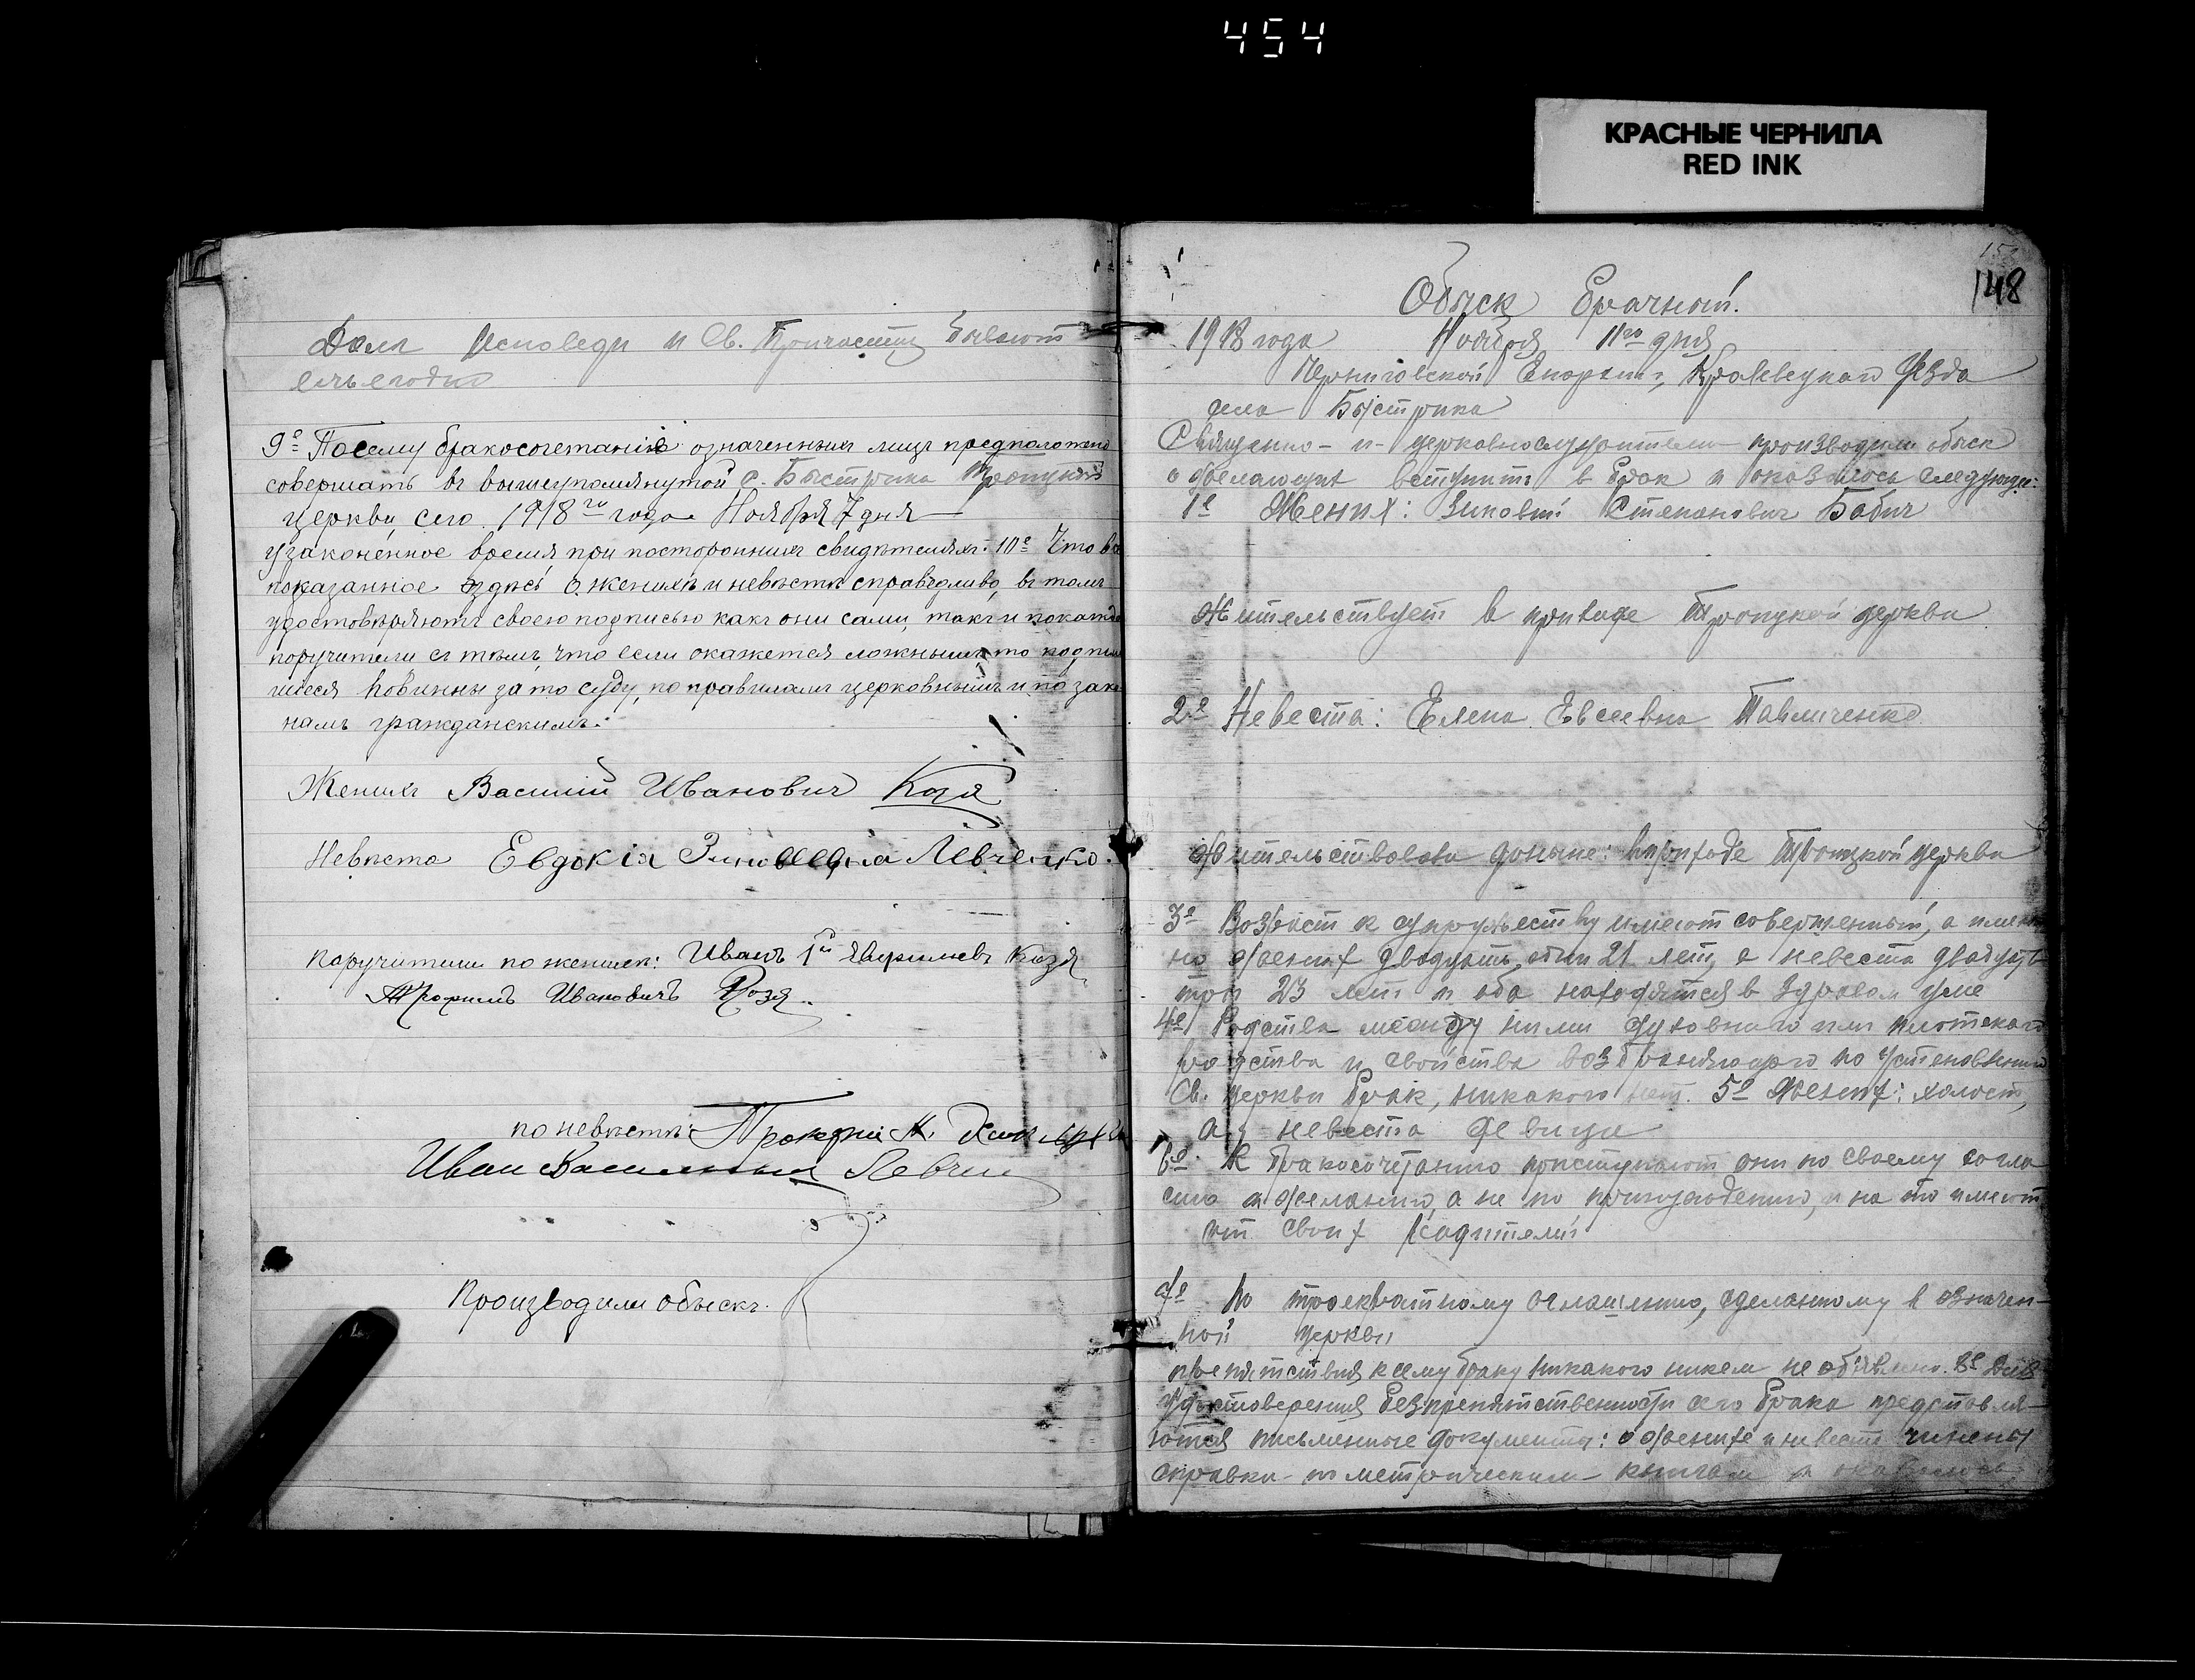 454
КРАСНЫЕ ЧЕРНИЛА
RED INK
Исповеди и Св. бывают
ежегодно
9е Посему бракосочетаніе означенныхъ лицъ предположено
совершить въ вышеупомянутой с. Быстрика Троицкой
церкви сего 1918го года Ноября 7 дня
узаконенное время, при постороннихъ свидѣтеляхъ. 10е Что в
показанное здѣсь о женихѣ и невѣстѣ справедливо, въ томъ
удостовѣряютъ своею подписью какъ они сами, такъ и по кажд
поручители съ тѣмъ, что если окажется ложнымъ, то подпи
шеся повинны за то суду, по правиламъ церковнымъ и по зако
намъ гражданскимъ.
Женихъ Василій Ивановичъ Козя
Невѣста Евдокія Левченко
Поручители по женихѣ: Иванъ Козя
Трофимъ Ивановичъ Козя
по невѣстѣ:
Иван
Производили обыскъ.
148
Обыск брачный.
1918 года Ноября 11го дня
Черниговской Епархии, Кролевецкаго Уезда
села Быстрика
Священно- и- церковнослужители производили обыск
о желающих вступить в брак и оказалось следующе:
1е Жених: Зиновий Степанович Бабич
Жительствует в приходе Троицкой церкви
2е Невеста: Елена Евсеевна Павличенко
Жительствовала доныне: в приходе Троицкой церкви
3е Возраст к супружеству имеют совершенный, а имен
но жених двадцать один 21 лет, а невеста двадцать
три 23 лет и оба находятся в здравом уме
4е Родства между ними духовнаго или плотскаго
родства и свойства возбраняющаго по установлению
Св. церкви брак, никакого нет. 5е Жених: холост,
а невеста девица
6е К бракосочетанию приступают они по своему согла
сию и желанию, а не по принуждению, и на то имеют
от своих родителей
7е По троекратному оглашению, сделанному в означен-
ной церкви
препятствия к сему браку никакого никем не объявлено. 8е Для
удостоверения безпрепятственности сего брака представля-
ются письменные документы: о женихе и невесте
справки по метрическим книгам и оказалось